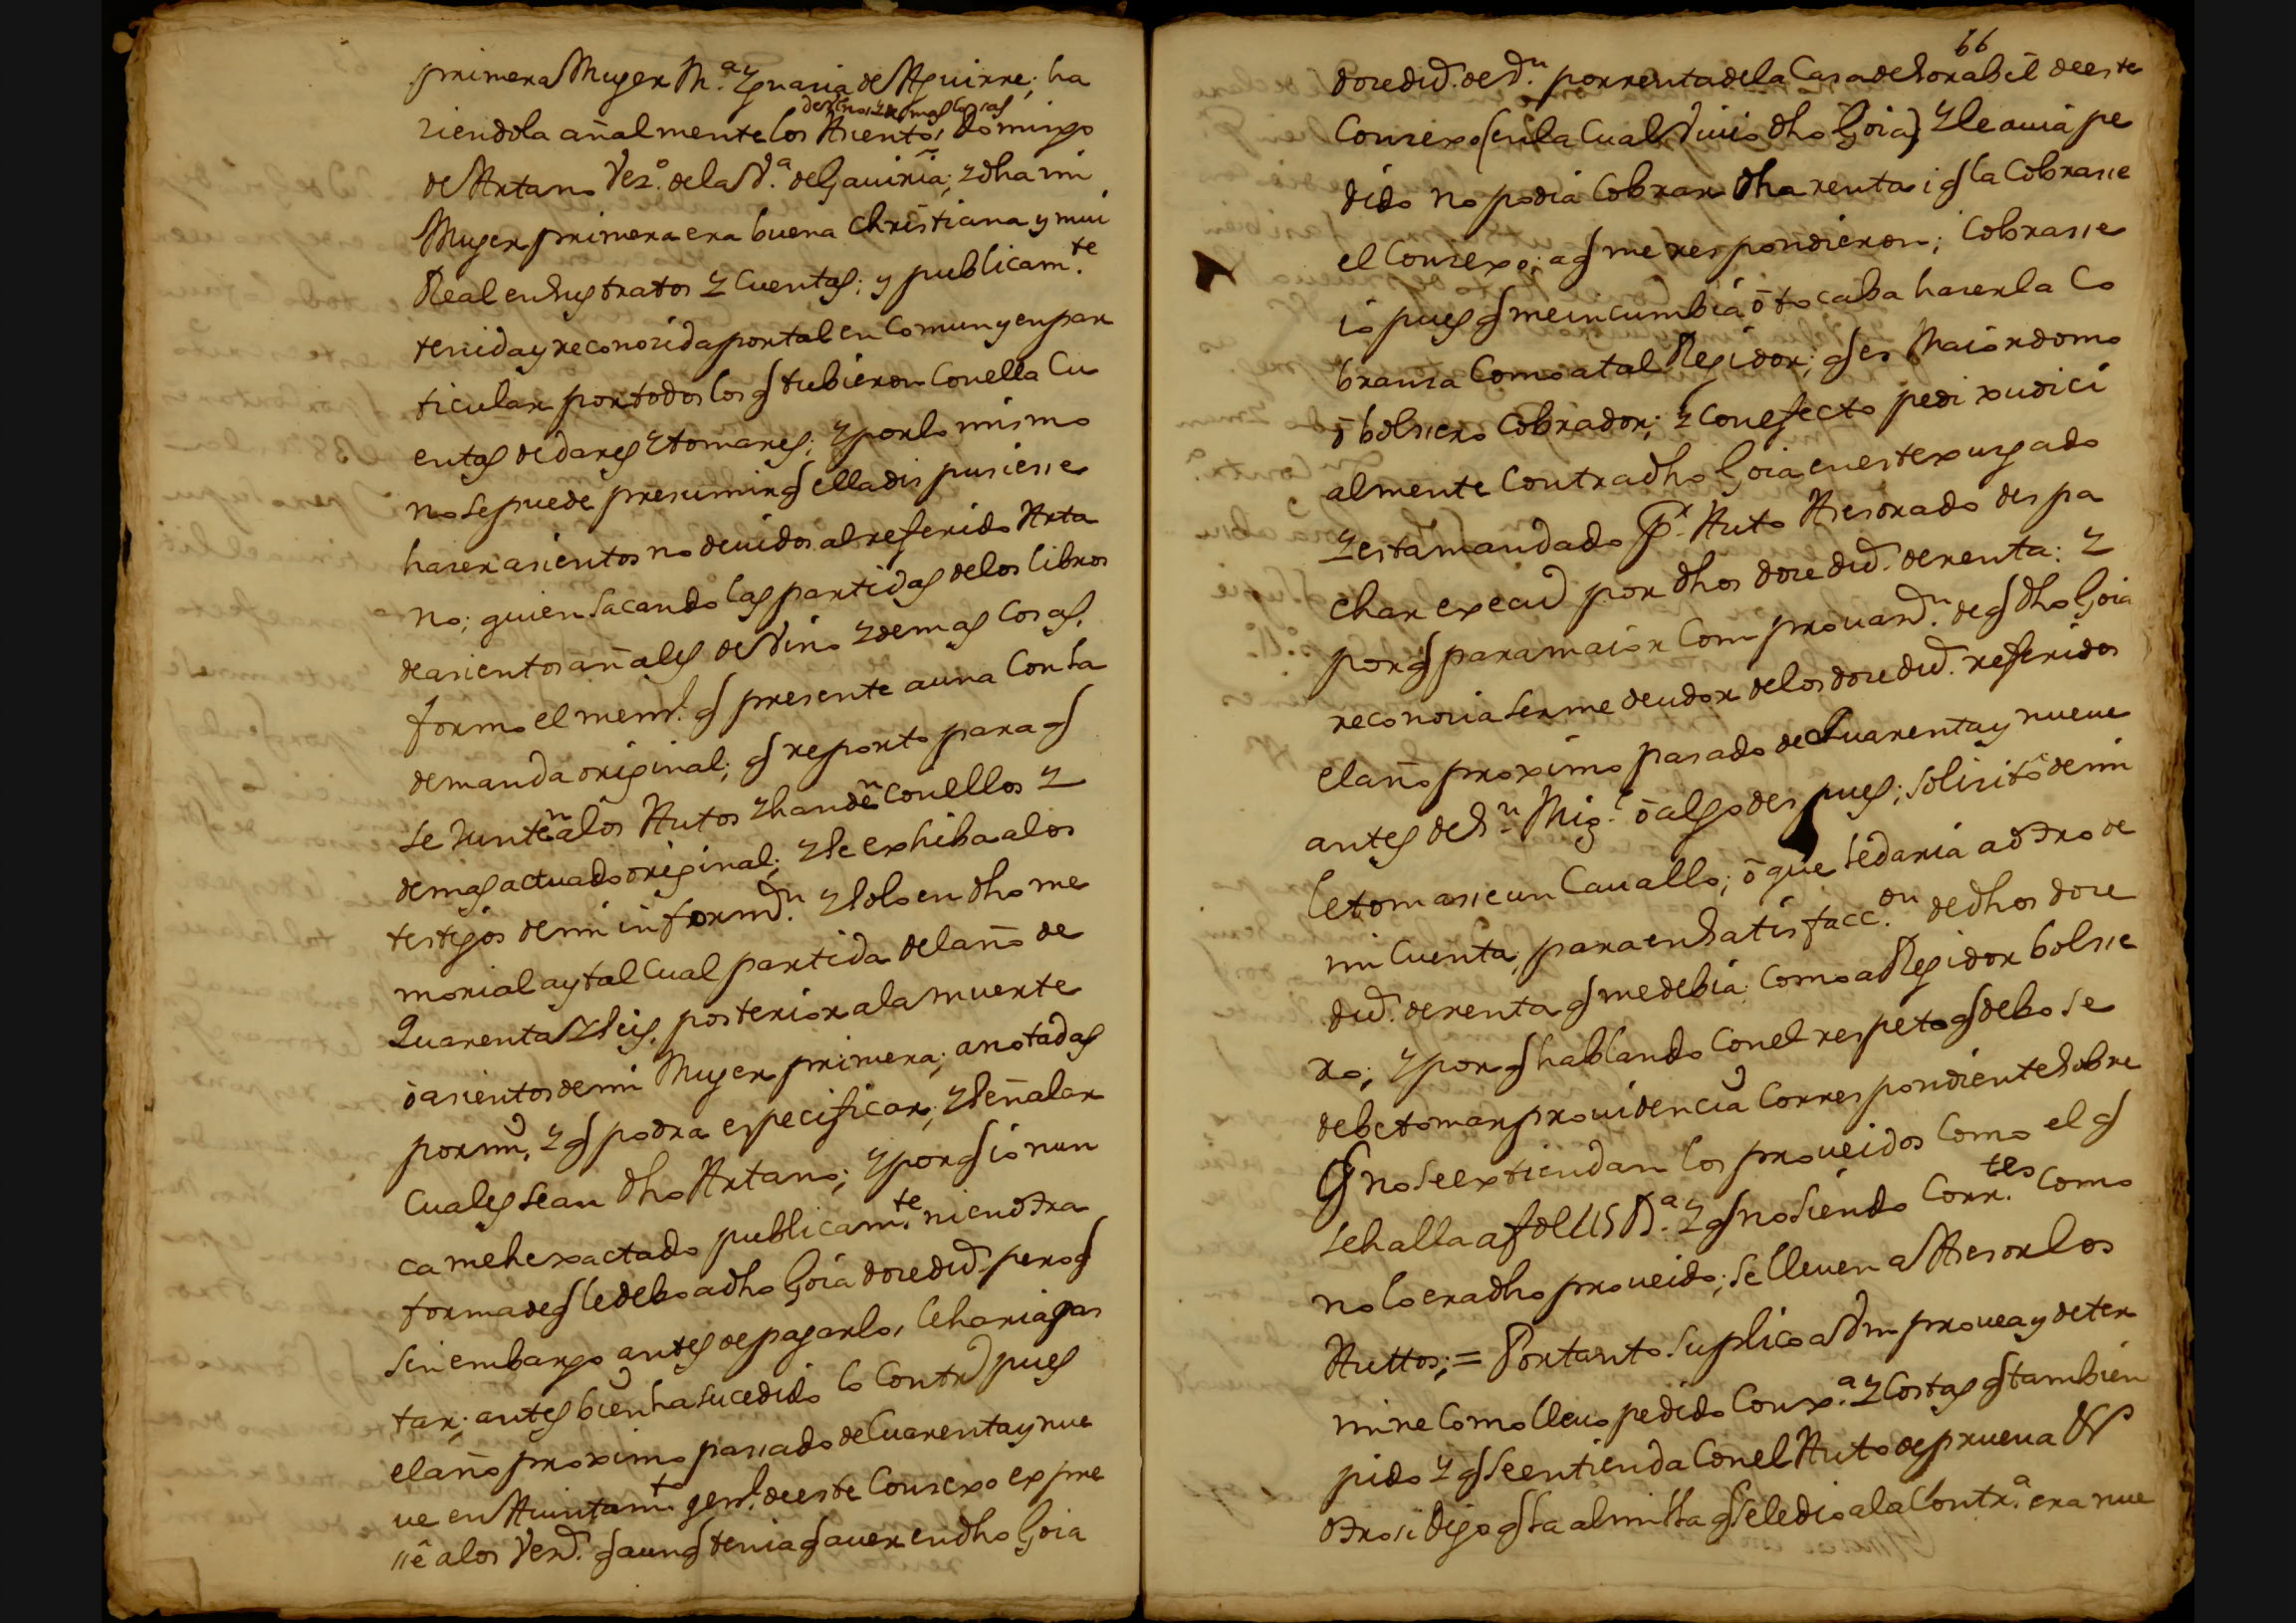 primera Muger M.ª Ygnacia de Aguirre; ha
ziendola añalmente los Asientos, Domingo
de vino, y demas cosas
de Artano Vez.º de la V.ª de Gaviria; y dha mi
Muger primera era buena Christiana y mui
Real en sus tratos y Cuentas; y publicam.te
tenida y reconozida por tal en Comun y en par
ticular por todos los q tubieron Con ella Cu
entas de dares y tomares; y por lo mismo
no se puede presumir q ella dispusiesse
hazer asientos no devidos al referido Arta
no; quien sacando las partidas de los libros
de asientos añales de Vino y demas Cosas,
formo el mem.l q presente a una Con la
demanda original; q reporto para q
se Junten a los Autos y handen con ellos y
demas actuado original; y se exhiba a los
testigos de mi informon. y solo en dho me
morial ay tal Cual partida del año de
Quarenta y seis, posterior a la muerte
ô asientos de mi Muger primera; anotadas
por mi, y q podra especificar, y señalar
Cuales sean dho Artano; y por q io nun
ca me he xactado publicam.te ni en otra
forma de q le debo a dho Goia doze dud. pero q
sin embargo antes de pagarlo, le haria gas
tar; antes bien ha sucedido lo Contr.o pues
el año proximo passado de Cuarenta y nue
ue en Auintam.to gen.l de este Conzexo expre
ssê a los Vez.s q aunq tenia q aver en dho Goia
66
doze dud. de v.n por renta de la Casa de Dorabil de este
Conzexo (en la Cual Vivio dho Goia) y le avia pe
dido no podia Cobrar dha renta i q la Cobrasse
el Conzexo; a q me respondieron; Cobrasse
io pues q me incumbia ô tocaba hazer la Co
branza Como a tal Regidor; q es Maiordomo
ô bolssero Cobrador; y Con efecto pedi xudici
almente Contra dho Goia en este xuzgado
y esta mandado p.r Auto Asesorado despa
char execu.on por dhos doze dud. de renta: y
por q para maior Comprouaz.on de q dho Goia
reconozia serme deudor de los doze dud. referidos
el año proximo pasado de Cuarenta y nueue
antes de S.n Mig.l ô algo despues; solizitô de mi
le tomasse un Cauallo; ô que se daria a otro de
mi Cuenta, para en satisfacc.on de dhos doze
dud. de renta q me debia Como a Regidor bolsse
ro; y por q hablando Con el respeto q debo se
debe tomar prouidencia Correspondiente sobre
q no se extiendan los proueidos Como el q
se halla a fol 115 B.ª y q no siendo Corr.tes Como
no lo era dho proueido; se lleuen a Asesor los
Auttos; = Por tanto suplico a Vm prouea y deter
mine Como lleuo pedido Con x.ª y Costas q tambien
pido y q se entienda Con el Auto de prueua &
Otrosi Digo q la almilla q se le dio a la Contr.ª era nue